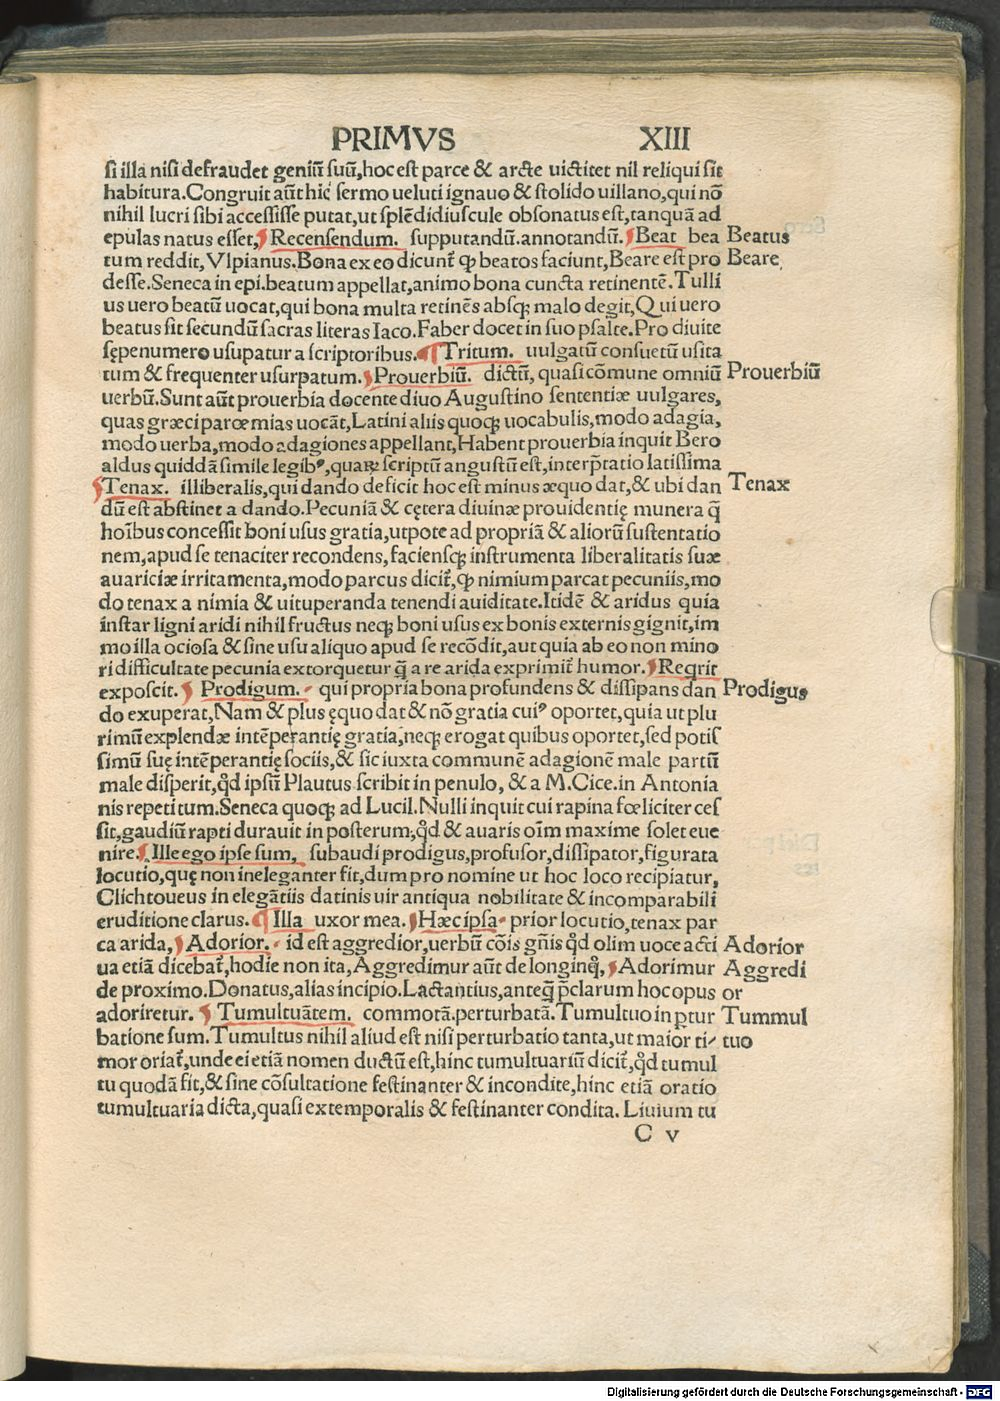 PRIMVS XIII
si illa nisi defraudet geniū suū,hoc est parce & arcte uictitet nil reliqui sit
habitura.Congruit aūt hic sermo ueluti ignauo & stolido uillano,qui nō
nihil lucri sibi accessisse putat,ut splēdidiuscule obsonatus est,tanquā ad
epulas natus esset,¶Recensendum. supputandū.annotandū.¶Beat bea Beatus
tum reddit,Vlpianus.Bona ex eo dicunt̄ ꝙ beatos faciunt,Beare est pro Beare,
desse.Seneca in epi.beatum appellat,animo bona cuncta retinentē.Tulli
us uero beatū uocat,qui bona multa retinēs absqꝫ malo degit,Qui uero
beatus sit secundū sacras literas Iaco.Faber docet in suo psalte.Pro diuite
sępenumero usupatur a scriptoribus.¶Tritum. uulgatū consuetū usita
tum & frequenter usurpatum.¶Prouerbiū. dictū, quasi cōmune omniū Prouerbiū
uerbū.Sunt aūt prouerbia docente diuo Augustino sententiæ uulgares,
quas græci parœmias uocāt,Latini aliis quoqꝫ uocabulis,modo adagia,
modo uerba,modo adagiones appellant,Habent prouerbia inquit Bero
aldus quiddā simile legibꝰ,quaꝝ scriptū angustū est,interp̄tatio latissima
¶Tenax. illiberalis,qui dando deficit hoc est minus æquo dat,& ubi dan Tenax
dū est abstinet a dando.Pecuniā & cętera diuinæ prouidentię munera q̄
hoībus concessit boni usus gratia,utpote ad propriā & aliorū sustentatio
nem,apud se tenaciter recondens,faciensqꝫ instrumenta liberalitatis suæ
auariciæ irritamenta,modo parcus dicit̄,ꝙ nimium parcat pecuniis,mo
do tenax a nimia & uituperanda tenendi auiditate.Itidē & aridus quia
instar ligni aridi nihil fructus neqꝫ boni usus ex bonis externis gignit,im
mo illa ociosa & sine usu aliquo apud se recōdit,aut quia ab eo non mino
ri difficultate pecunia extorquetur q̄ a re arida exprimit̄ humor.¶Reqrit
exposcit.¶ Prodigum. qui propria bona profundens & dissipans dan Prodigus
do exuperat,Nam & plus ęquo dat & nō gratia cuiꝰ oportet,quia ut plu
rimū explendæ intēperantię gratia,neqꝫ erogat quibus oportet,sed potis
simū suę intēperantię sociis,& sic iuxta communē adagionē male partū
male disperit,qd̄ ipsū Plautus scribit in penulo, & a M.Cice.in Antonia
nis repetitum.Seneca quoqꝫ ad Lucil.Nulli inquit cui rapina fœliciter ces
sit,gaudiū rapti durauit in posterum,qd̄ & auaris oīm maxime solet eue
nire.¶Ille ego ipse sum, subaudi prodigus,profusor,dissipator,figurata
locutio,quę non ineleganter fit,dum pro nomine ut hoc loco recipiatur,
Clichtoueus in elegātiis datinis uir antiqua nobilitate & incomparabili
eruditione clarus.¶Illa uxor mea.¶Hæc ipsa prior locutio,tenax par
ca arida,¶Adorior. id est aggredior,uerbū cōis gn̄is qd̄ olim uoce acti Adorior
ua etiā dicebat̄,hodie non ita,Aggredimur aūt de longinq̄,¶Adorimur Aggredi
de proximo.Donatus,alias incipio.Lactantius,anteq̄ p̄clarum hoc opus or
adoriretur. ¶ Tumultuātem. commotā.perturbatā.Tumultuo in ꝑtur Tummul
batione sum.Tumultus nihil aliud est nisi perturbatio tanta,ut maior ti tuo
mor oriat̄,unde ei etiā nomen ductū est,hinc tumultuariū dicit̄,qd̄ tumul
tu quodā fit,& sine cōsultatione festinanter & incondite,hinc etiā oratio
tumultuaria dicta,quasi extemporalis & festinanter condita. Liuium tu
C v
Digitalisierung gefördert durch die Deutsche Forschungsgemeinschaft - DFG